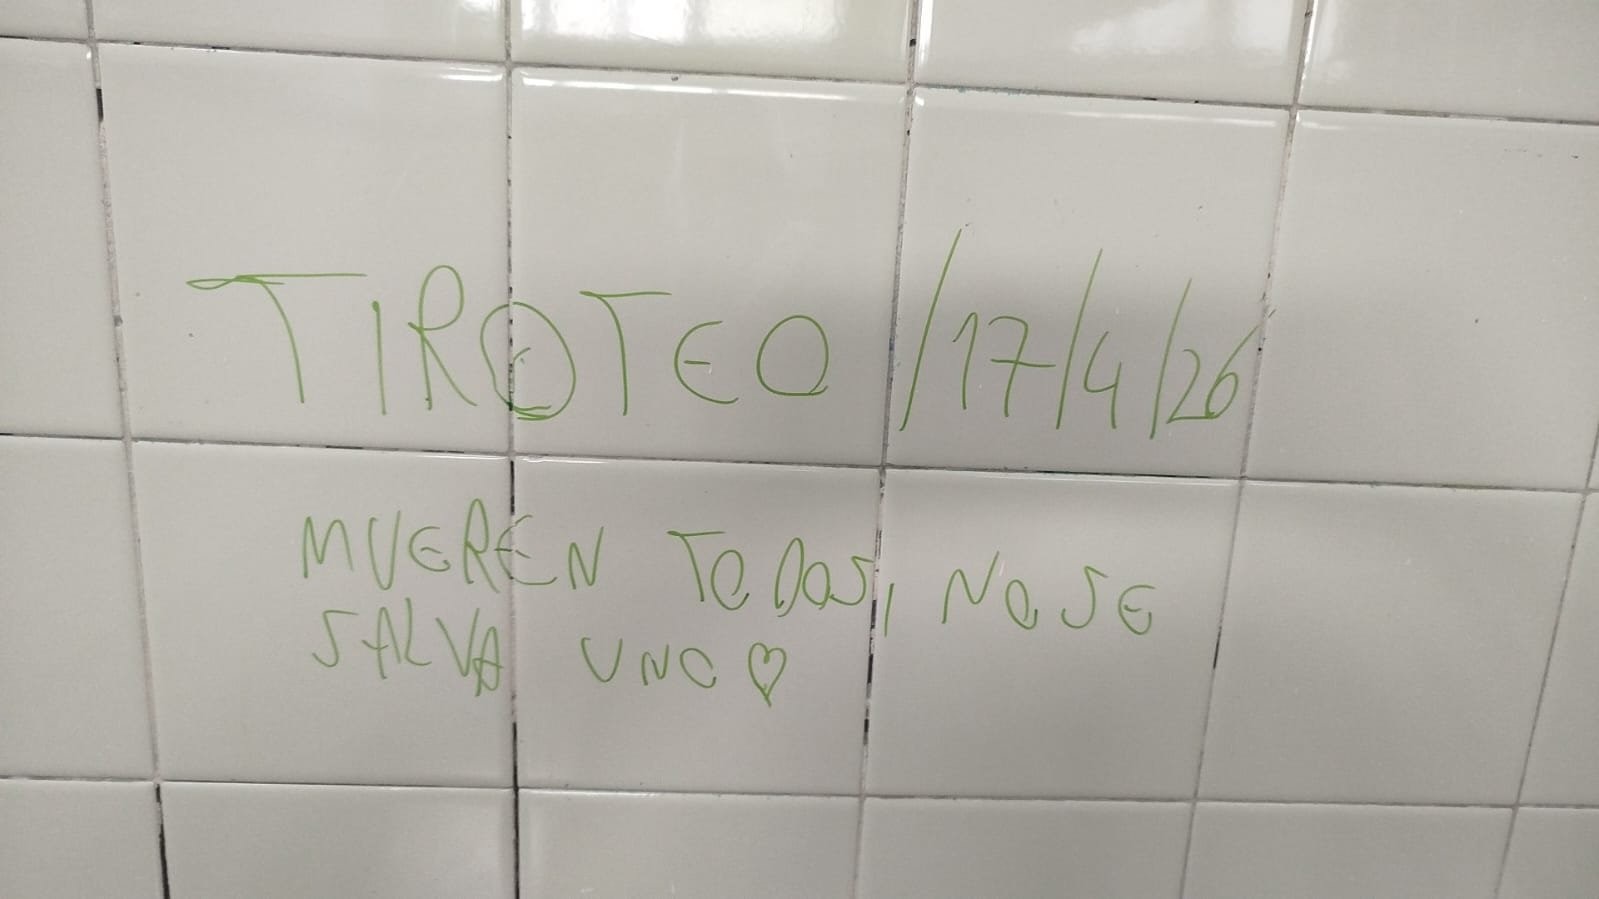 TIROTEO /17/4/26
MUEREN TODOS, NO SE
SALVA UNO ♡